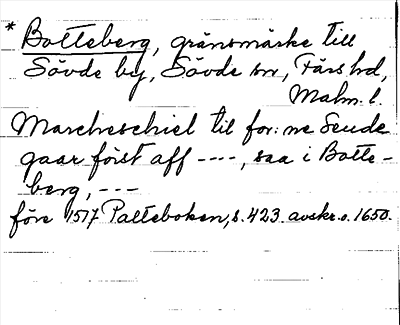 * Botteberg, gränsmärke till
Sövde by, Sövde sn, Färs hd,
Malm. l.
Marcheschiel til for: ne Seude
gaar först aff ----, saa i Botte-
berg, ---
före 1517 Palteboken, s. 423. avskr. o. 1650.